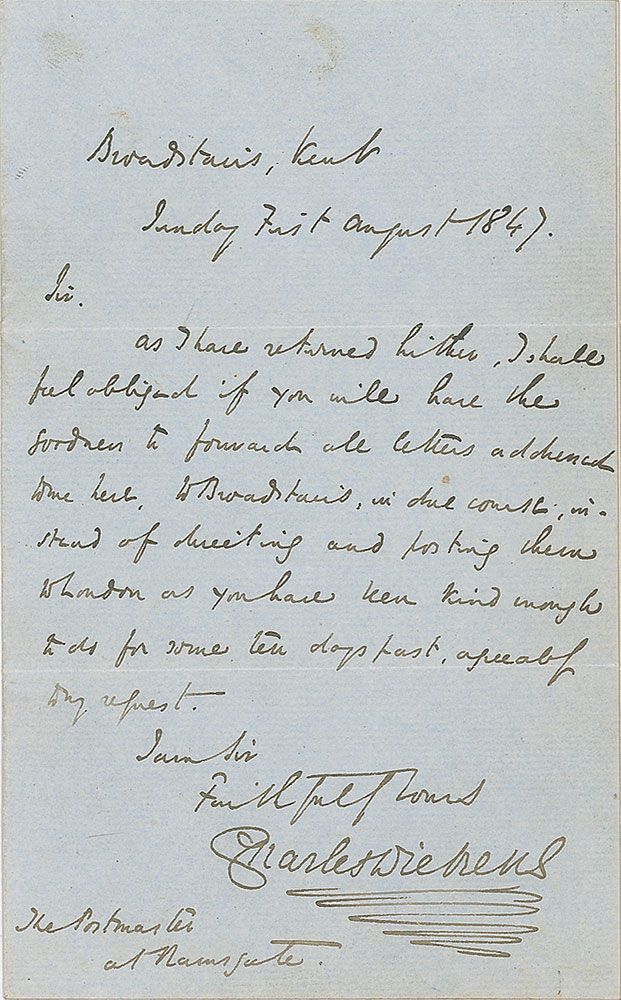 Broadstairs, Kent
Sunday First August 1847.
Sir.
As I have returned hither, I shall
feel obliged if you will have the
goodness to forward all letters addressed
to me here, to Broadstairs, in due course, in-
stead of directing and posting them
to London as you have been kind enough
to do for some ten days past, agreeably
to my request.
I am Sir
Faithfully Yours
Charles Dickens
The Postmaster
at Ramsgate.